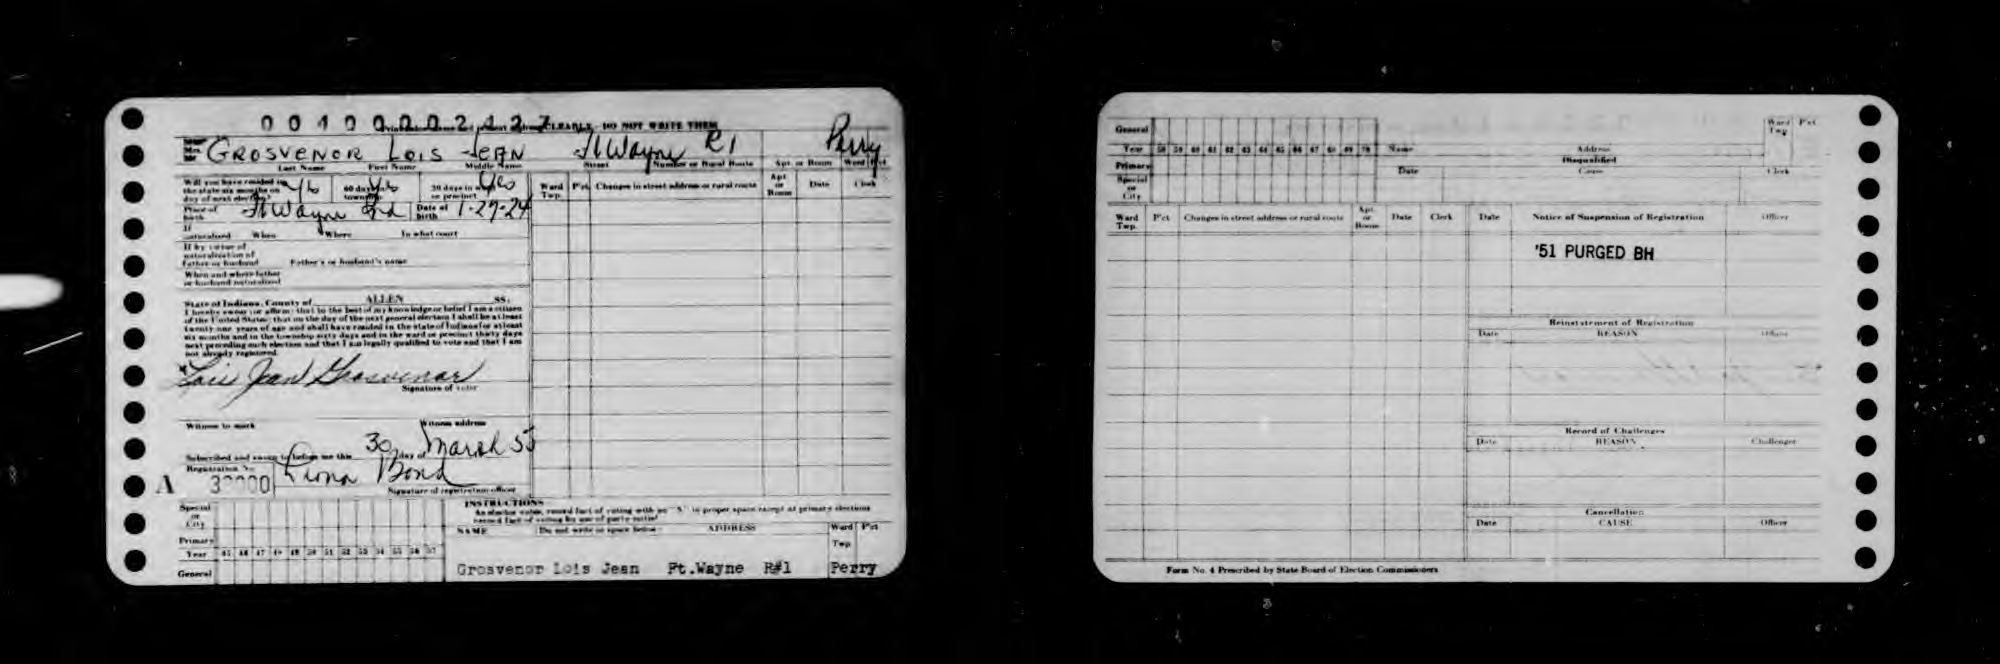 0 0 4 0 0 0 0 2 4 2 7
CLEARLY - DO NOT WRITE THEM
GROSVENOR LOIS JEAN Ft Wayne R1 Perry
Last Name First Name Middle Name Street Number or Rural Route Apt. or Room Ward Pct
Will you have resided in the state six months on day of next election? Yes 60 days in township Yes 30 days in ward or precinct Yes
Place of birth Ft Wayne Ind Date of birth 1-27-24
If naturalized When Where In what court
If by virtue of naturalization of father or husband Father's or husband's name
When and where father or husband naturalized
Ward Twp. Pct. Changes in street address or rural route Apt. or Room Date Clerk
State of Indiana, County of ALLEN SS:
I hereby swear (or affirm) that to the best of my knowledge or belief I am a citizen
of the United States; that on the day of the next general election I shall be at least
twenty-one years of age and shall have resided in the state of Indiana for at least
six months and in the township sixty days and in the ward or precinct thirty days
next preceding such election and that I am legally qualified to vote and that I am
not already registered.
Lois Jean Grosvenor
Signature of voter
Witness to mark Witness address
Subscribed and sworn to before me this 30 day of March 55
Registration No. Bond
A
Signature of registration officer
Special or City
Primary
Year 45 46 47 48 49 50 51 52 53 54 55 56 57
General
INSTRUCTIONS
NAME Do not write in space below ADDRESS Ward Twp. Pct
Grosvenor Lois Jean Ft.Wayne R#1 Perry
General
Year 58 59 60 61 62 63 64 65 66 67 68 69 70
Primary
Special or City
Name Address Ward Twp Pct
Disqualified
Date Cause Clerk
Ward Twp. Pct Changes in street address or rural route Apt. or Room Date Clerk
Date Notice of Suspension of Registration Officer
'51 PURGED BH
Reinstatement of Registration
Date REASON Officer
Record of Challenges
Date REASON Challenger
Cancellation
Date CAUSE Officer
Form No. 4 Prescribed by State Board of Election Commissioners